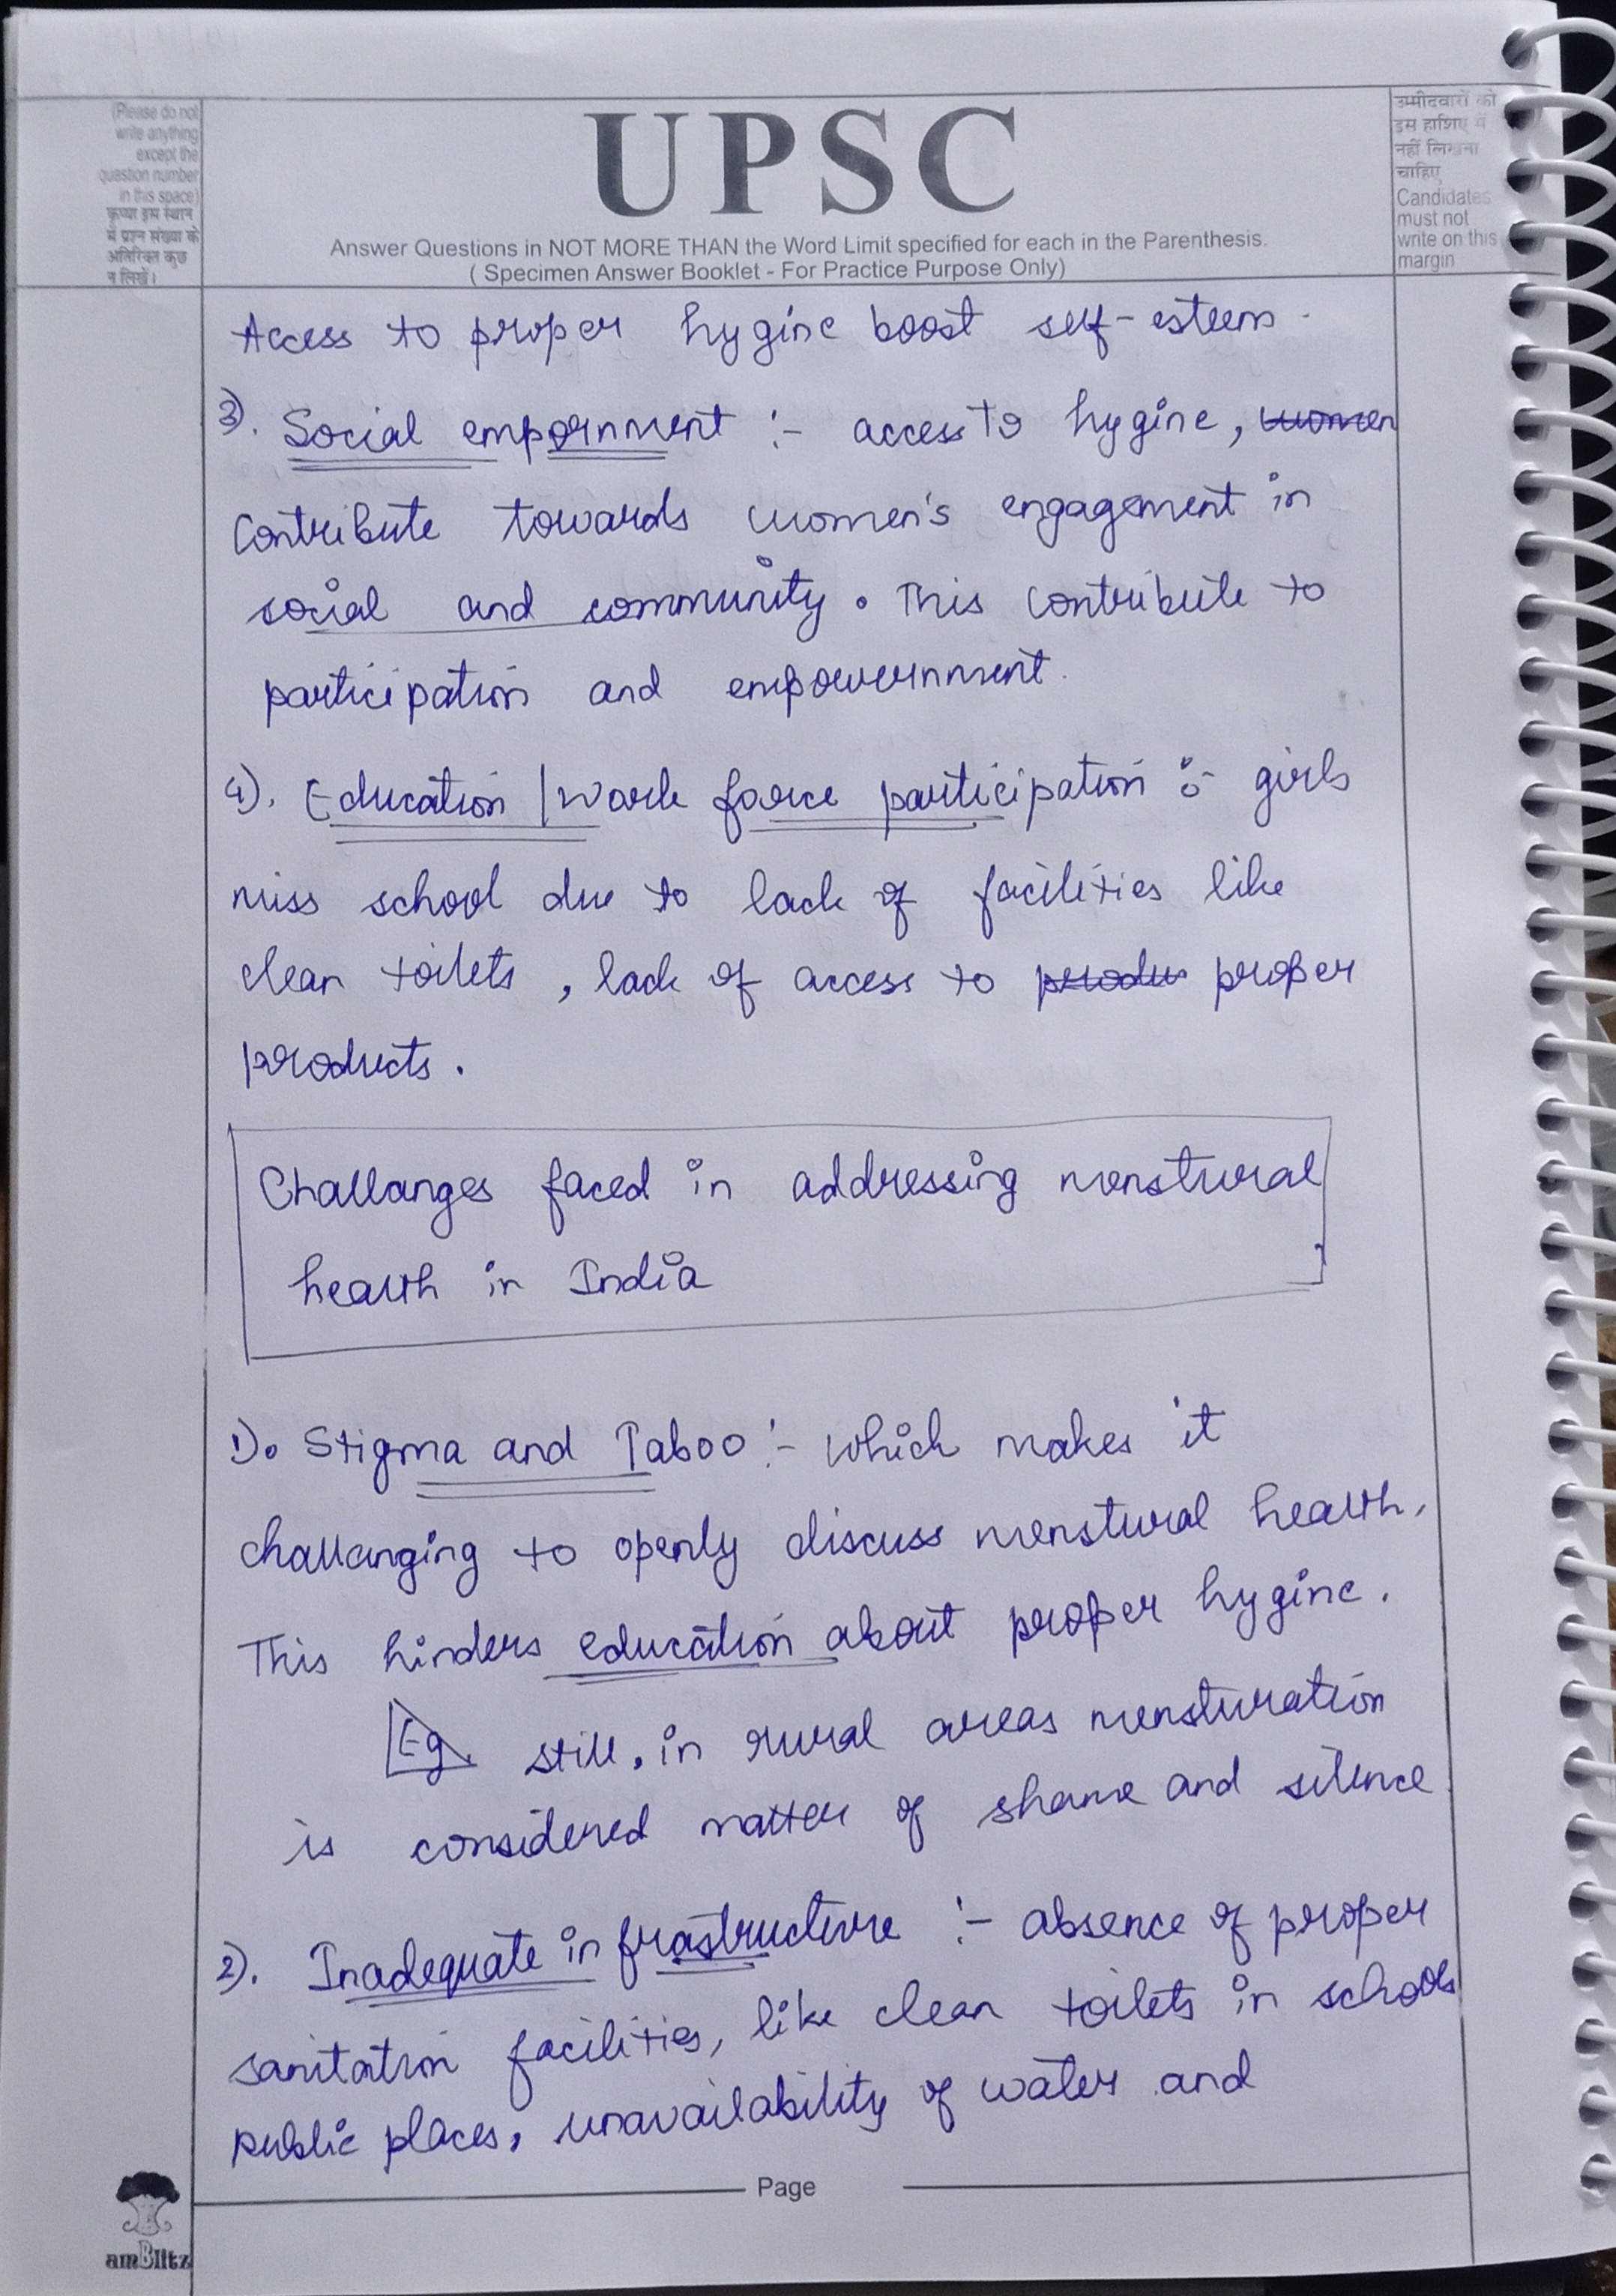 (Please do not
write anything
except the
question number
in this space)
कृप्या इस स्थान
में प्रश्न संख्या के
अतिरिक्त कुछ
न लिखें।
UPSC
Answer Questions in NOT MORE THAN the Word Limit specified for each in the Parenthesis.
( Specimen Answer Booklet - For Practice Purpose Only)
उम्मीदवारों को
इस हाशिए में
नहीं लिखना
चाहिए
Candidates
must not
write on this
margin
Access to proper hygine boost self-esteem.
3). Social empornment :- access to hygine, women
contribute towards women's engagement in
social and community. This contribute to
participation and empowernment.
4). Education / Work force participation :- girls
miss school due to lack of facilities like
clean toilets, lack of access to produ proper
products.
Challanges faced in addressing menstural
health in India
1). Stigma and Taboo :- which makes it
challanging to openly discuss menstural health,
This hinders education about proper hygine.
Eg still, in rural areas mensturation
is considered matter of shame and silence
2). Inadequate infrastructure :- absence of proper
sanitation facilities, like clean toilets in schools
public places, unavailability of water and
Page
amBlitz